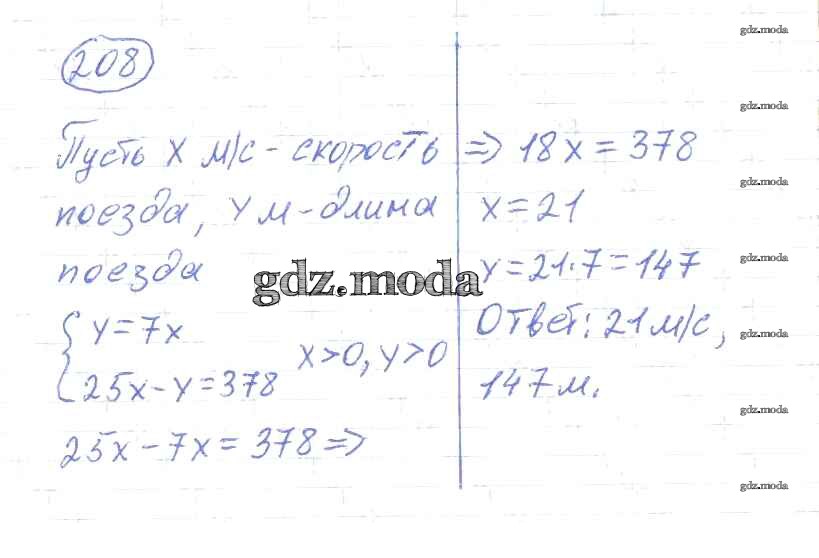 208
Пусть x м/с - скорость
поезда, y м - длина
поезда
{ y = 7x
25x - y = 378
x > 0, y > 0
25x - 7x = 378 =>
=> 18x = 378
x = 21
y = 21·7 = 147
Ответ: 21 м/с,
147 м.
gdz.moda
gdz.moda
gdz.moda
gdz.moda
gdz.moda
gdz.moda
gdz.moda
gdz.moda